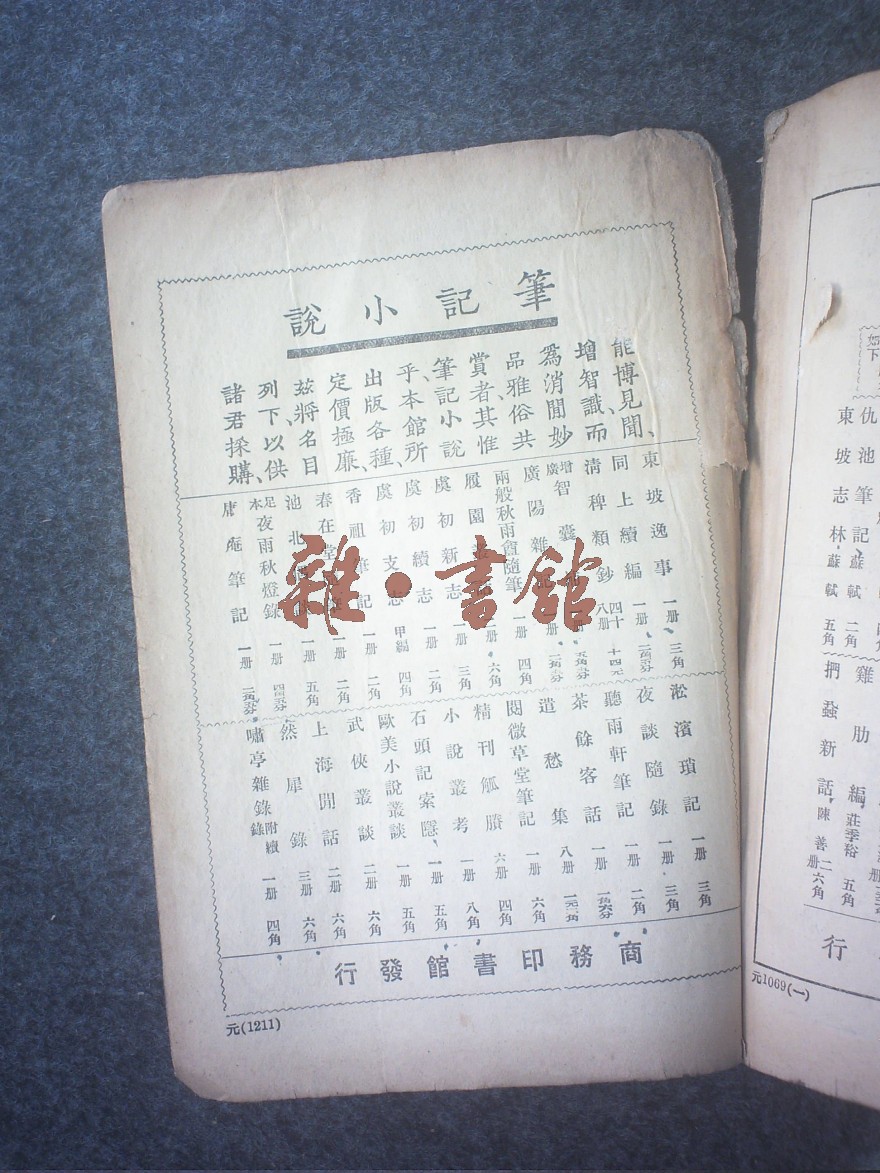 筆記小說
能博見聞、
增智識、而
爲消閒妙
品、雅俗共
賞者、其惟
筆記小說
乎、本館所
出版各種、
定價極廉、
茲將名目
列下、以供
諸君採購、
東坡逸事 一册 三角
同上續編 一册 二角五分
清稗類鈔 四十八册 十四元
增廣智囊補 册 五角五分
廣陽雜記 册 一角五分
兩般秋雨盦隨筆 一册 四角
履園叢話 二册 六角
虞初新志 一册 三角
虞初續志 一册 二角
虞初支志 甲編 四角
香祖筆記 一册 二角
春在堂 一册 二角
池北 一册 五角
足本夜雨秋燈錄 一册 四角五分
庸庵筆記 一册 二角五分
淞濱瑣記 一册 三角
夜談隨錄 一册 三角
聽雨軒筆記 一册 二角
茶餘客話 一册 一角五分
遣愁集 八册 一元二角
閱微草堂筆記 一册 六角
精刊觚賸 六册 四角
小說叢考 一册 八角
石頭記索隱 一册 五角
歐美小說叢談 一册 五角
武俠叢談 二册 六角
上海閒話 二册 六角
然犀錄 三册 六角
嘯亭雜錄附續錄 一册 四角
商務印書館發行
元(1211)
雜·書館
如下
仇池筆記 蘇軾 二角
東坡志林 蘇軾 五角
雞肋編 莊季裕 五角
捫蝨新話 陳善 二册 六角
行
元1069(一)